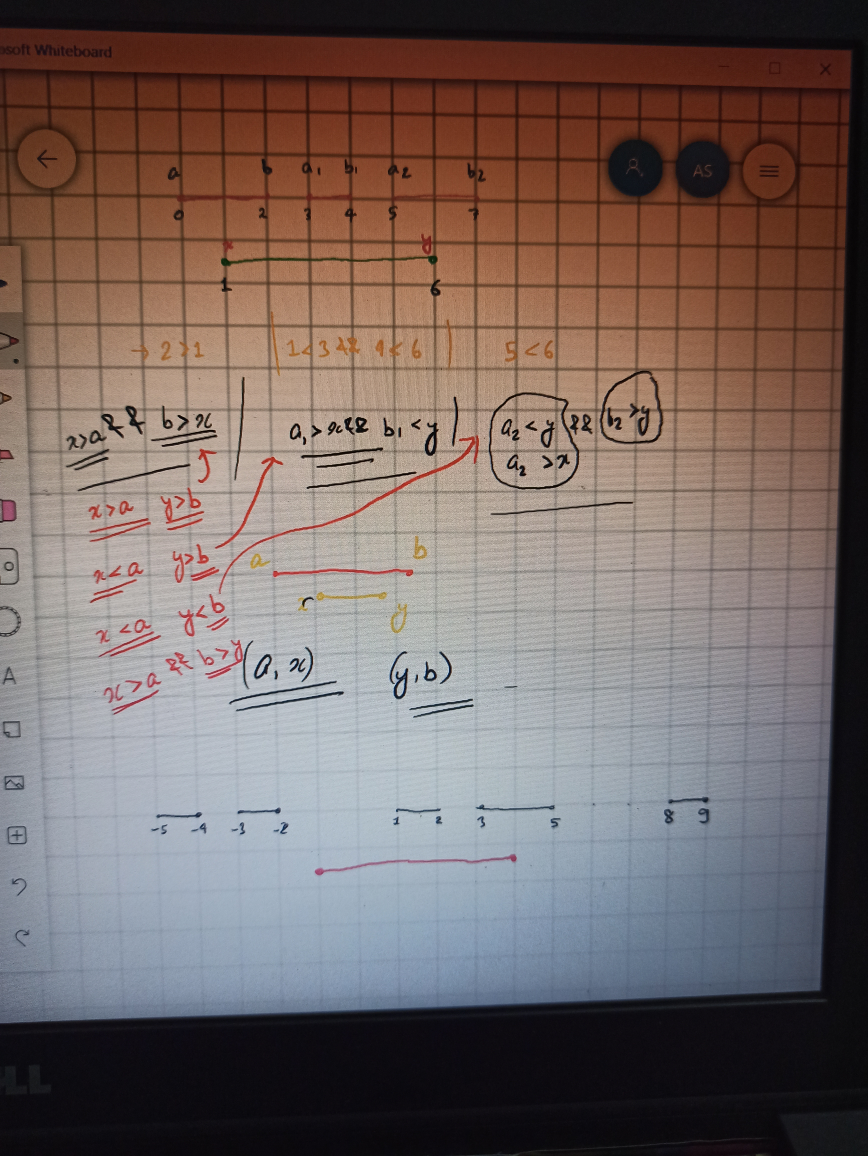 osoft Whiteboard
a b a₁ b₁ a₂ b₂
AS
0 2 3 4 5 7
x y
1 6
→ 2>1 | 1<3 && 4<6 | 5<6
x>a && b>x | a₁>x && b₁<y | a₂<y && b₂>y
a₂>x
x>a y>b
x<a y>b
a b
x<a y<b
x y
x>a && b>y (a,x) (y,b) —
A
-5 -4 -3 -2 1 2 3 5 8 9